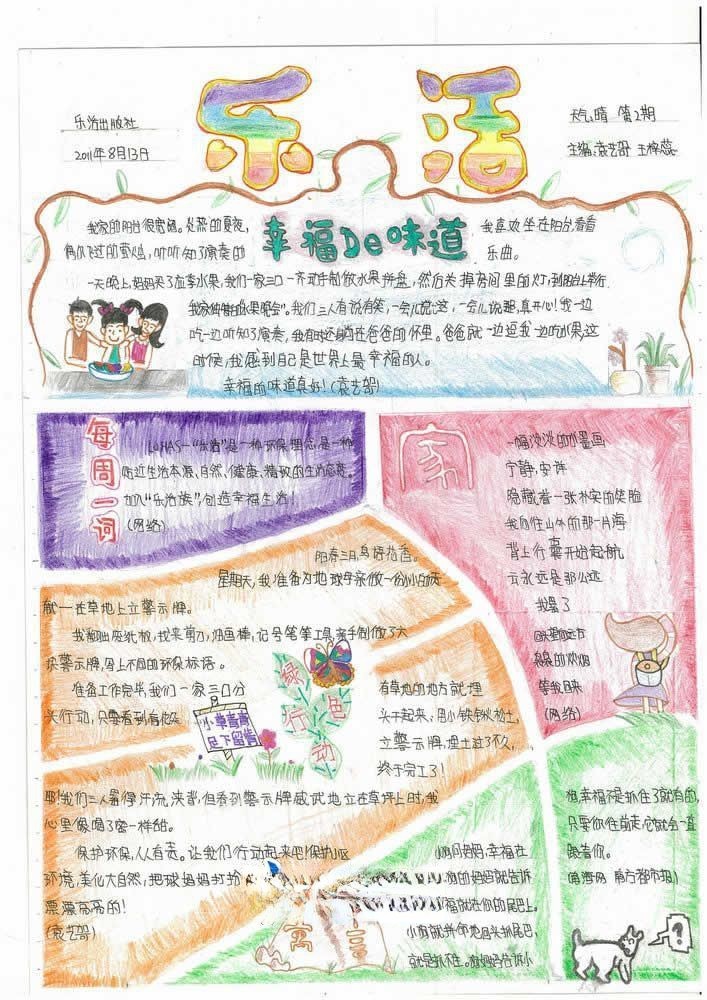 乐活
乐活出版社
2011年8月13日
天气:晴 第2期
幸福De味道
我家的阳台很宽阔。炎热的夏夜,
我喜欢坐在阳台看看
乐曲。
一天晚上,妈妈买了应季水果,我们一家三口一齐动手制做水果拼盘,然后关掉房间里的灯,到阳台上举行
我们三人有说有笑,一会儿说这,一会儿说那,真开心!我一边
吃一边听知了演奏,我有时还躺在爸爸的怀里。爸爸就一边逗我一边吃水果,这
时候,我感到自己是世上最幸福的人。
幸福的味道真好!(袁艺卿)
每周一词
LOHAS—“乐活”是一种环保理念,是一种
贴近生活本源,自然、健康、精致的生活态度。
加入“乐活族”,创造幸福生活!
(网络)
家
一幅淡淡的水墨画
宁静,安详
隐藏着一张朴实的笑脸
我向往山外的那一片海
背上行囊开始起航
方永远是那么远
我累了
回头望
袅袅的炊烟
等我回来
(网络)
阳春三月,鸟语花香。
星期天,我准备为地球母亲做一份小小的
献—在草地上立警示牌。
我翻出废纸板,找来剪刀,油画棒,记号笔等工具,亲手制做了六
块警示牌,写上不同的环保标语。
准备工作完毕,我们一家三口分
头行动,只要看到有
绿色行动
小草青青
足下留情
有草地的地方就埋
头干起来,用小铁锹松土,
立警示牌,埋土过了不久,
终于完工了!
耶!我们三人累得汗流浃背,但看到警示牌威武地立在草坪上时,我
心里像喝了蜜一样甜。
保护环保,人人有责。让我们行动起来吧!保护
环境,美化大自然,把球妈妈打扮
漂漂亮亮的!
(袁艺卿)
寓言
小狗问妈妈,幸福在
的妈妈就告诉
福就在你的尾巴上。
小狗就拼命地回头抓尾巴,
就是抓不住。狗妈妈告诉小
幸福不是抓住了就有的,
只要你往前走,它就会一直
跟着你。
南方都市报)
?